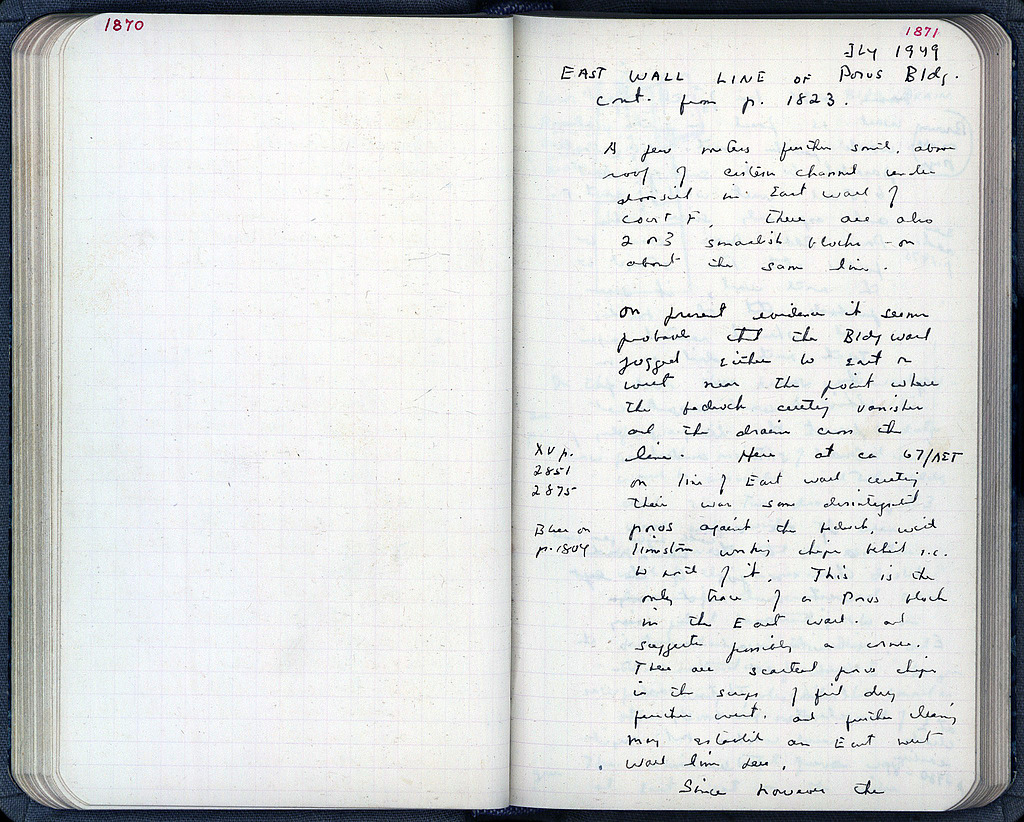 1870
1871
July 1949
EAST WALL LINE OF Poros Bldg.
cont. from p. 1823.
A few meters further south, above
roof of cistern channel under
in East wall of
Court F, there are also
2 or 3 smallish blocks - on
about the same line.
On present evidence it seems
probable that the Bldg wall
jogged either to East or
west near the point where
the bedrock cutting vanishes
and the drain cross the
XV p.
2851
2875
line. Here at ca 67/ΛΣΤ
on line of East wall cutting
there was some disintegrated
Blue on
p. 1804
poros against the bedrock, with
limestone working chips behind i.e.
to north of it. This is the
only trace of a Poros block
in the East wall. and
suggests possibly a corner.
There are scattered poros chips
in the scraps of fill dug
further west. and further cleaning
may establish an East west
wall line here.
Since however the